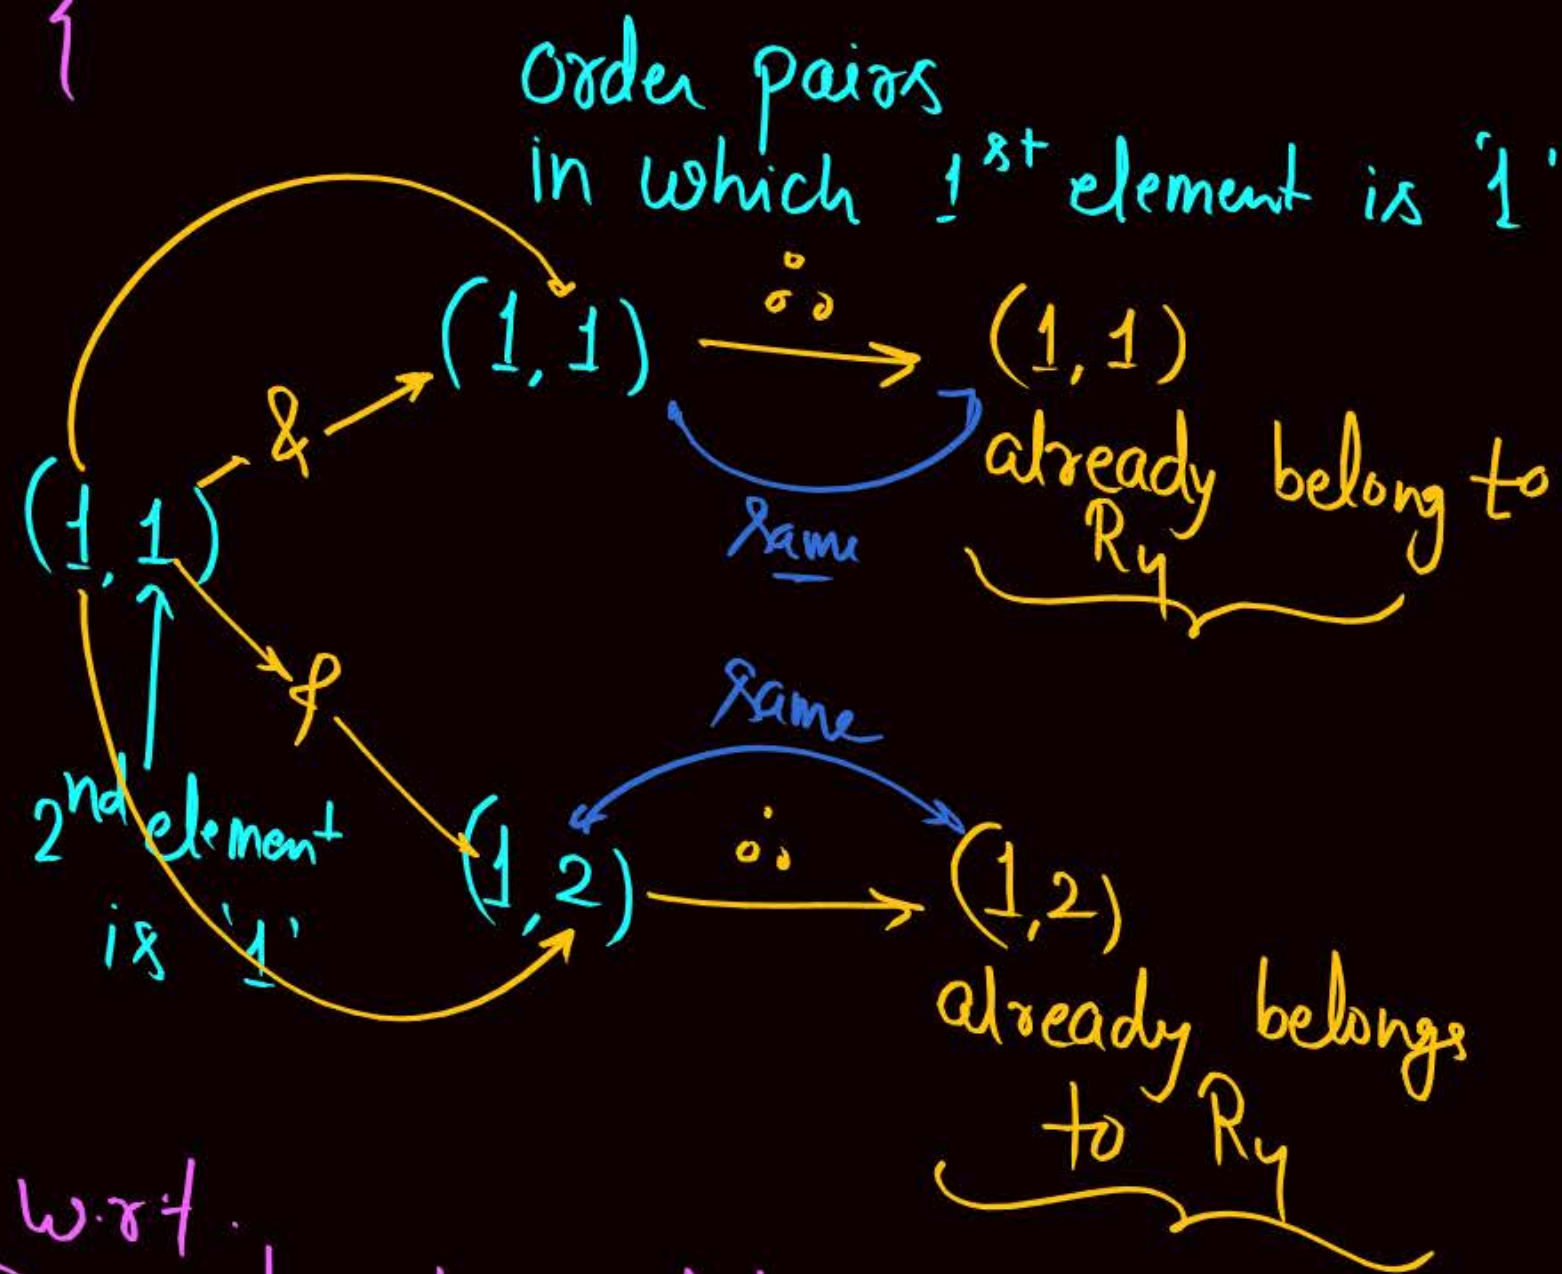 {
Order pairs
in which 1st element is '1'
(1, 1) ∴ (1, 1)
&
already belong to
R4
same
(1, 1)
same
&
2nd element
is '1'
(1, 2) ∴ (1, 2)
already belongs
to R4
w.r.t.